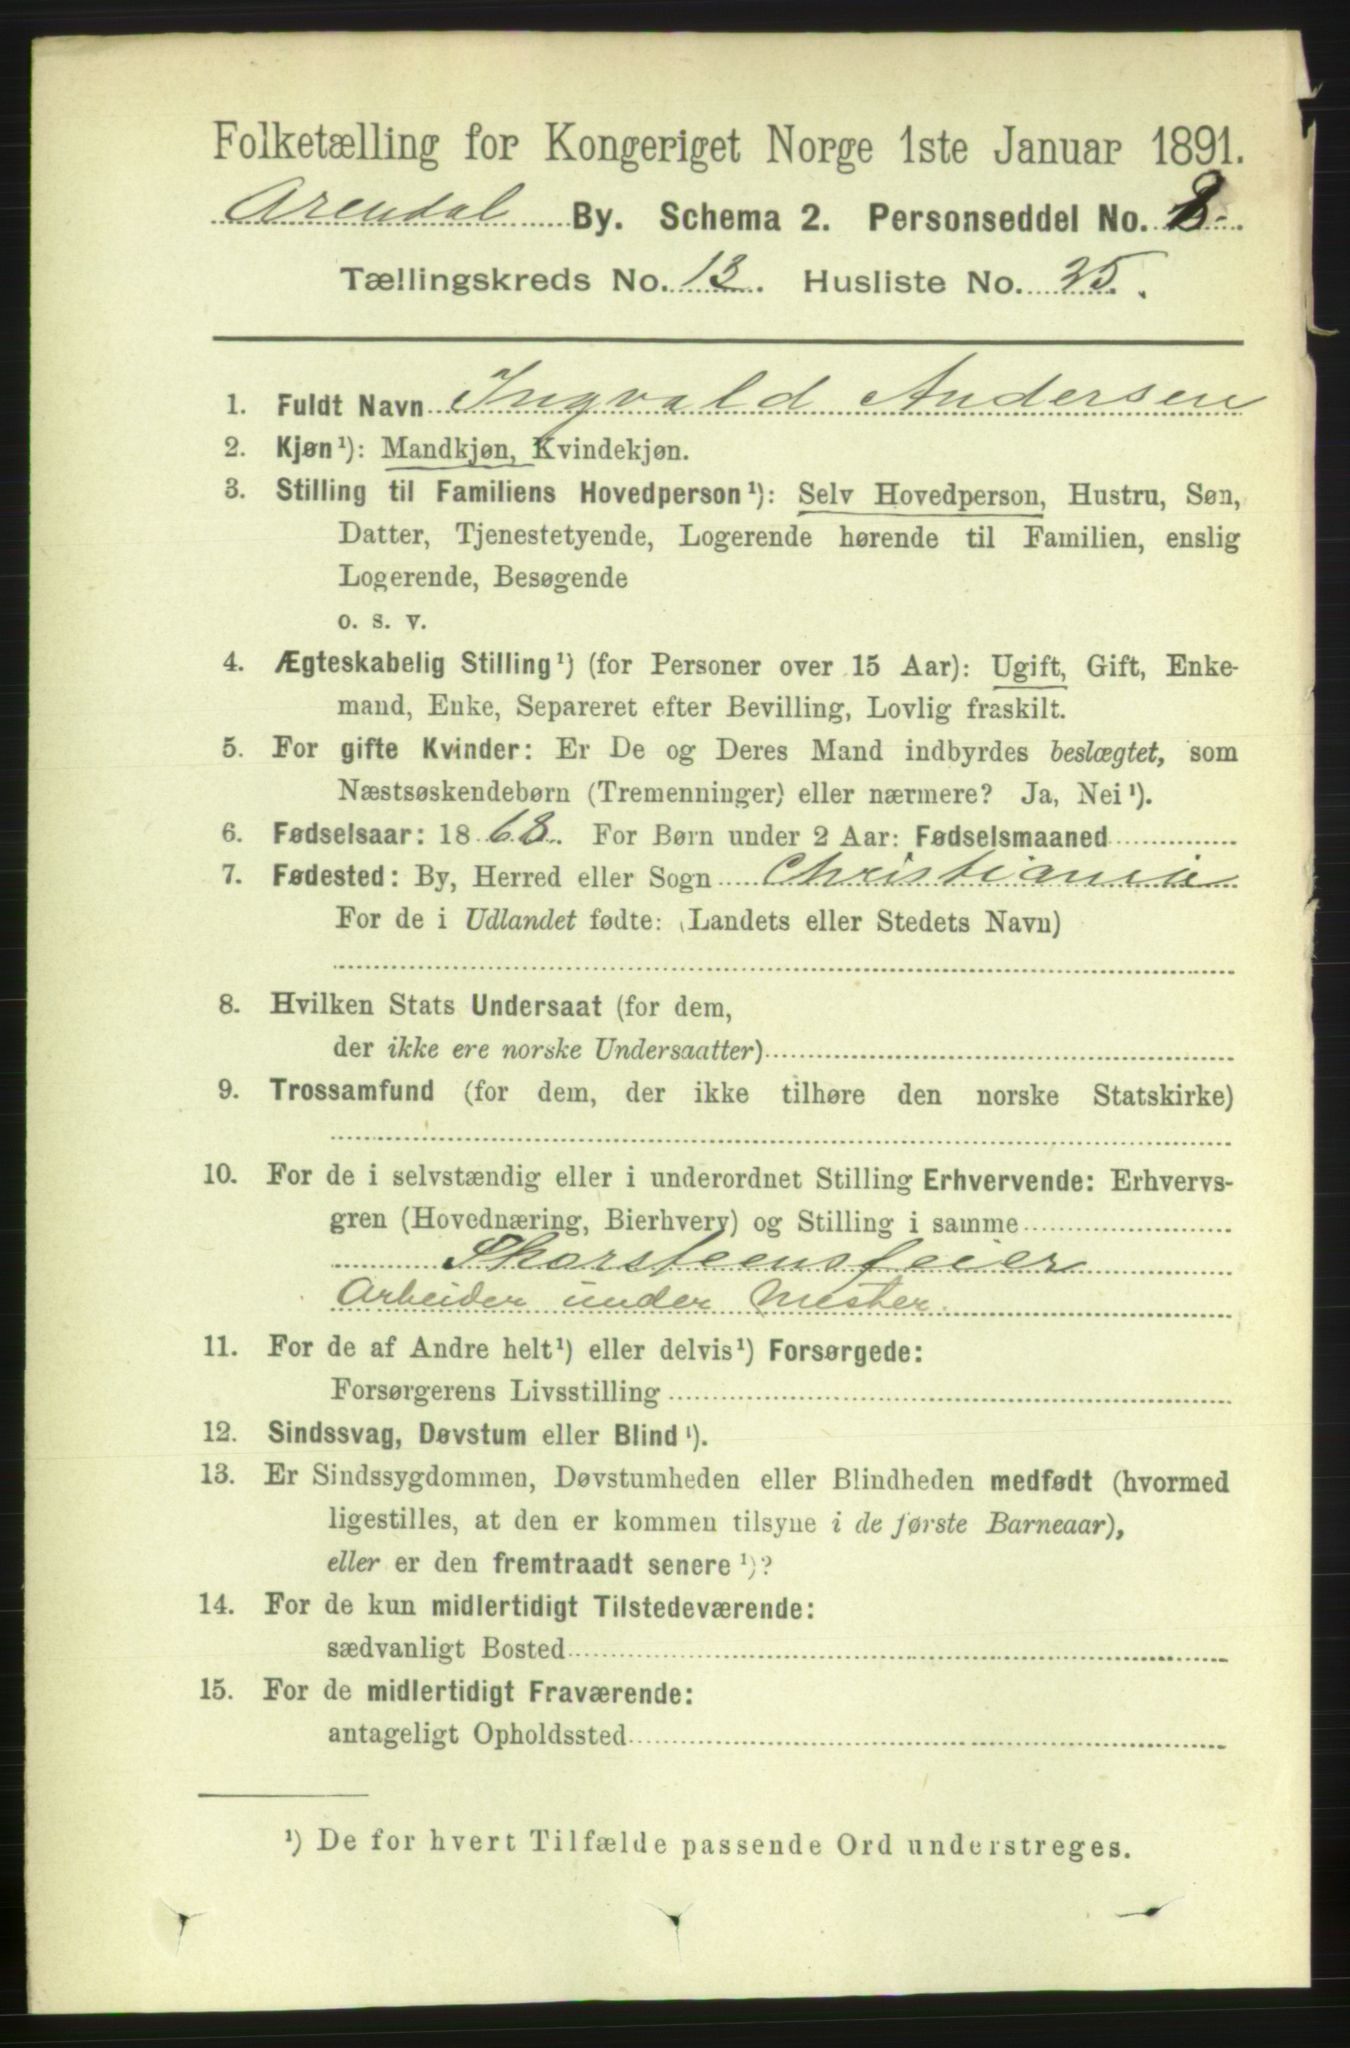 Folketælling for Kongeriget Norge 1ste Januar 1891.
Arendal By. Schema 2. Personseddel No. 8.
Tællingskreds No. 13. Husliste No. 25.
1. Fuldt Navn Ingvald Andersen
2. Kjøn¹): Mandkjøn, Kvindekjøn.
3. Stilling til Familiens Hovedperson¹): Selv Hovedperson, Hustru, Søn,
Datter, Tjenestetyende, Logerende hørende til Familien, enslig
Logerende, Besøgende
o. s. v.
4. Ægteskabelig Stilling¹) (for Personer over 15 Aar): Ugift, Gift, Enke-
mand, Enke, Separeret efter Bevilling, Lovlig fraskilt.
5. For gifte Kvinder: Er De og Deres Mand indbyrdes beslægtet, som
Næstsøskendebørn (Tremenninger) eller nærmere? Ja, Nei¹).
6. Fødselsaar: 1868. For Børn under 2 Aar: Fødselsmaaned
7. Fødested: By, Herred eller Sogn Christiania
For de i Udlandet fødte: (Landets eller Stedets Navn)
8. Hvilken Stats Undersaat (for dem,
der ikke ere norske Undersaatter)
9. Trossamfund (for dem, der ikke tilhøre den norske Statskirke)
10. For de i selvstændig eller i underordnet Stilling Erhvervende: Erhvervs-
gren (Hovednæring, Bierhverv) og Stilling i samme
Skorsteensfeier
Arbeider under Mester.
11. For de af Andre helt¹) eller delvis¹) Forsørgede:
Forsørgerens Livsstilling
12. Sindssvag, Døvstum eller Blind¹).
13. Er Sindssygdommen, Døvstumheden eller Blindheden medfødt (hvormed
ligestilles, at den er kommen tilsyne i de første Barneaar),
eller er den fremtraadt senere¹)?
14. For de kun midlertidigt Tilstedeværende:
sædvanligt Bosted
15. For de midlertidigt Fraværende:
antageligt Opholdssted
¹) De for hvert Tilfælde passende Ord understreges.